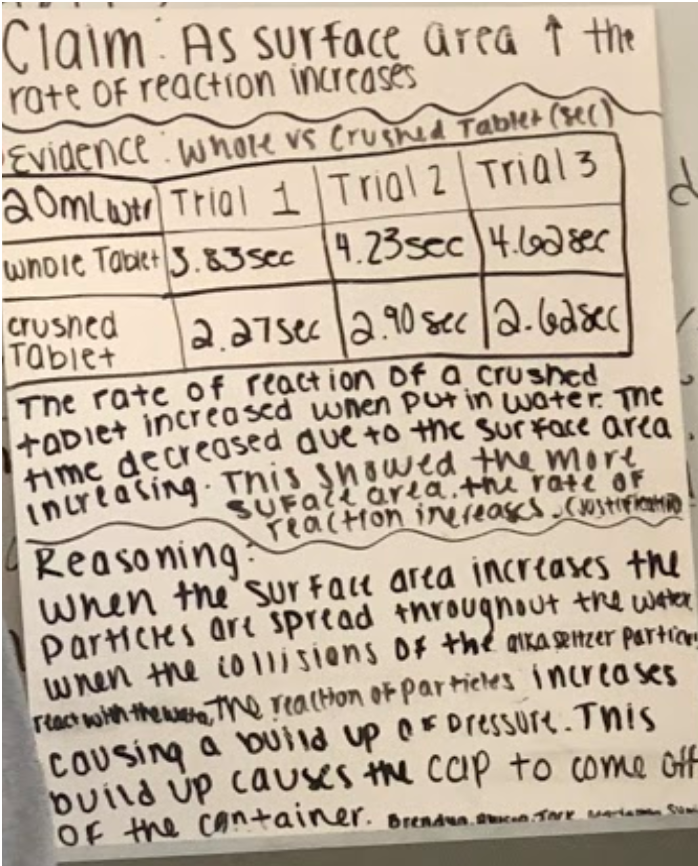 Claim: As surface area ↑ the
rate of reaction increases
Evidence: Whole vs Crushed Tablet (sec)
20mL wtr Trial 1 Trial 2 Trial 3
whole Tablet 3.83sec 4.23sec 4.62sec
crushed 2.27sec 2.90 sec 2.62sec
Tablet
The rate of reaction of a crushed
tablet increased when put in water. The
time decreased due to the surface area
increasing. This showed the more
suface area. the rate of
reaction increases. (Justification)
Reasoning:
When the surface area increases the
Particles are spread throughout the water
when the collisions of the alka seltzer particles
react with the water, The reaction of particles increases
causing a build up of pressure. This
build up causes the cap to come off
of the container. Brendan,